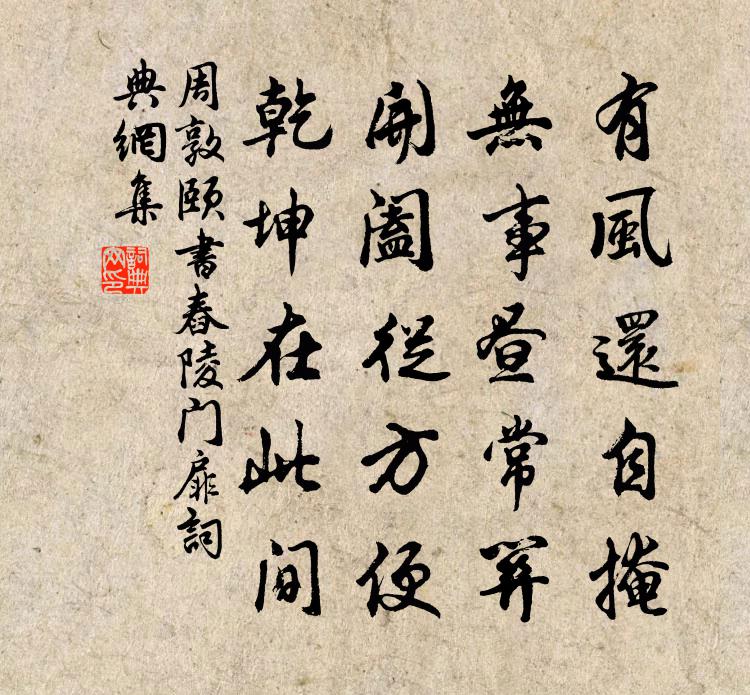 有風還自掩
無事晝常關
開闔從方便
乾坤在此間
周敦頤書舂陵門扉詞
典網集
詞典网印